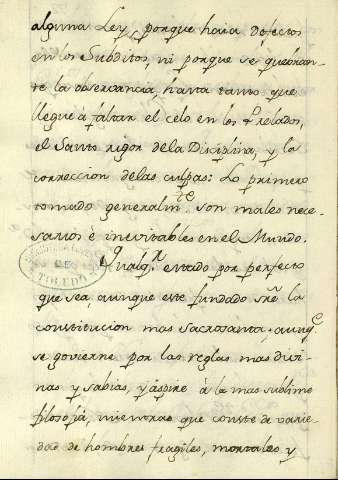 alguna Ley, porque haia Defectos
en los Subditos, ni porque se quebran-
te la observancia, hasta tanto que
llegue a faltar el celo en los Prelados,
el Santo rigor de la Disciplina, y la
correccion de las culpas: Lo primero
tomado generalmte. son males nece-
sarios è inevitables en el Mundo.
Qualqr. estado por perfecto
que sea, aunque este fundado sre. la
constitucion mas Sacrosanta, aunqe.
se govierne por las reglas mas divi-
nas y sabias, y aspire à la mas sublime
filosofia, mientras que conste de varie-
dad de hombres fragiles, mortales y
DE
TOLEDO